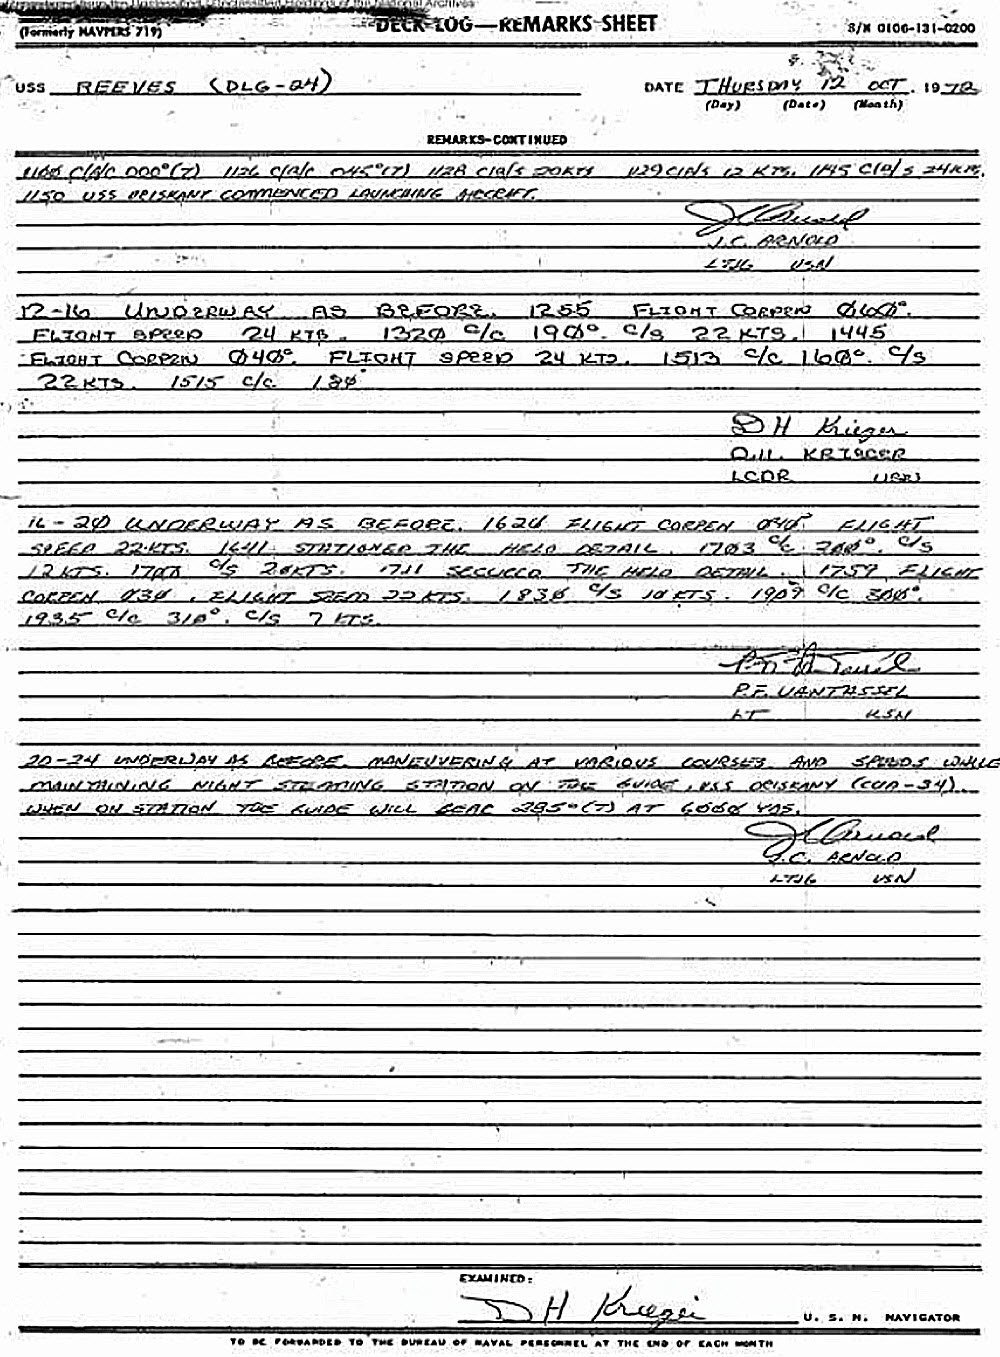 National Archives
DECK LOG—REMARKS SHEET
(Formerly NAVPERS 719)
S/N 0106-131-0200
USS REEVES (DLG-24)
DATE THURSDAY 12 OCT, 1972
(Day) (Date) (Month)
REMARKS-CONTINUED
C/A/C 000°(T) 1126 C/A/C 045°(T) 1128 C/A/S 20KTS 1129 C/A/S 12 KTS. 1145 C/A/S 24KTS.
1150 USS ORISKANY COMMENCED LAUNCHING AIRCRAFT.
J.C. ARNOLD
LTJG USN
12-16 UNDERWAY AS BEFORE. 1255 FLIGHT CORPEN
FLIGHT SPEED 24 KTS. 1320 C/C 190°. C/S 22 KTS. 1445
FLIGHT CORPEN 040°. FLIGHT SPEED 24 KTS. 1513 C/C 160°. C/S
22 KTS. 1515 C/C
D H Krieger
D.H. KRIEGER
LCDR USN
16-20 UNDERWAY AS BEFORE. 1620 FLIGHT CORPEN FLIGHT
SPEED 22 KTS. 1641 STATIONED THE HELO DETAIL. 1703 C/C C/S
12 KTS. C/S 20KTS. 1711 SECURED THE HELO DETAIL. 1759 FLIGHT
CORPEN 030. FLIGHT SPEED 22 KTS. 1830 C/S 10 KTS. 1909 C/C 300°.
1935 C/C 310°. C/S 7 KTS.
P.F. VANTASSEL
LT USN
20-24 UNDERWAY AS BEFORE. MANEUVERING AT VARIOUS COURSES AND SPEEDS WHILE
MAINTAINING NIGHT STEAMING STATION ON THE GUIDE, USS ORISKANY (CVA-34).
WHEN ON STATION THE GUIDE WILL BEAR 285°(T) AT 6000 YDS.
J.C. ARNOLD
LTJG USN
EXAMINED:
D H Krieger U. S. N. NAVIGATOR
TO BE FORWARDED TO THE BUREAU OF NAVAL PERSONNEL AT THE END OF EACH MONTH